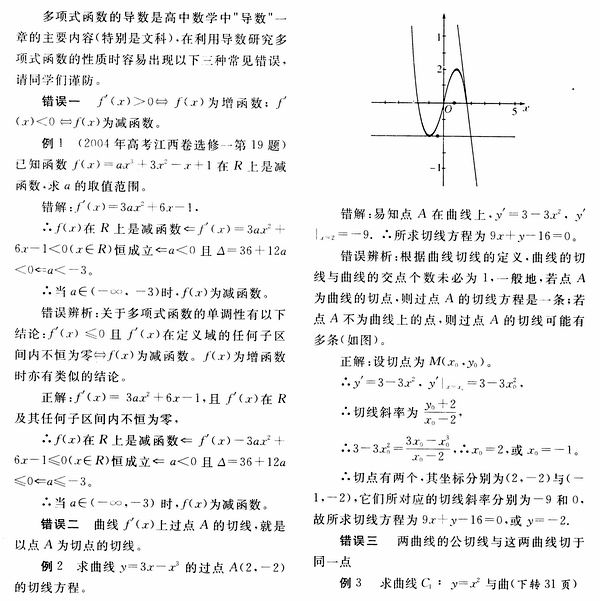 多项式函数的导数是高中数学中"导数"一
章的主要内容(特别是文科),在利用导数研究多
项式函数的性质时容易出现以下三种常见错误,
请同学们谨防。
错误一 f′(x)>0⇔ f(x)为增函数; f′
(x)<0 ⇔f(x)为减函数。
例1 (2004年高考江西卷选修一第19题)
已知函数 f(x)=ax³+3x²−x+1在R上是减
函数,求a的取值范围。
错解:f′(x)=3ax²+6x−1,
∴f(x)在R上是减函数⇐f′(x)=3ax²+
6x−1<0(x∈R)恒成立⇐a<0且Δ=36+12a
<0⇐a<−3。
∴当a∈(−∞, −3)时,f(x)为减函数。
错误辨析:关于多项式函数的单调性有以下
结论:f′(x) ≤0且f′(x)在定义域的任何子区
间内不恒为零⇔f(x)为减函数。f(x)为增函数
时亦有类似的结论。
正解:f′(x)= 3ax²+6x−1,且 f′(x)在R
及其任何子区间内不恒为零,
∴f(x)在R上是减函数⇐ f′(x)−3ax²+
6x−1≤0(x∈R)恒成立⇐ a<0且Δ=36+12a
≤0⇐a≤−3。
∴当a∈(−∞,−3) 时,f(x)为减函数。
错误二 曲线 f′(x)上过点A的切线,就是
以点A为切点的切线。
例2 求曲线 y=3x−x³ 的过点A(2,−2)
的切线方程。
2
1
O
5 x
−1
错解:易知点A在曲线上,y′=3−3x², y′
|x=2=−9. ∴所求切线方程为9x+y−16=0。
错误辨析:根据曲线切线的定义,曲线的切
线与曲线的交点个数未必为1,一般地,若点A
为曲线的切点,则过点A的切线方程是一条;若
点A不为曲线上的点,则过点A的切线可能有
多条(如图)。
正解:设切点为M(x₀,y₀)。
∴y′=3−3x², y′|x=x₀=3−3x₀²,
∴切线斜率为 (y₀+2)/(x₀−2),
∴3−3x₀²=(3x₀−x₀³)/(x₀−2),∴x₀=2,或x₀=−1。
∴切点有两个,其坐标分别为(2,−2)与(−
1,−2),它们所对应的切线斜率分别为−9和0,
故所求切线方程为9x+y−16=0,或y=−2.
错误三 两曲线的公切线与这两曲线切于
同一点
例3 求曲线C₁: y=x²与曲(下转31页)